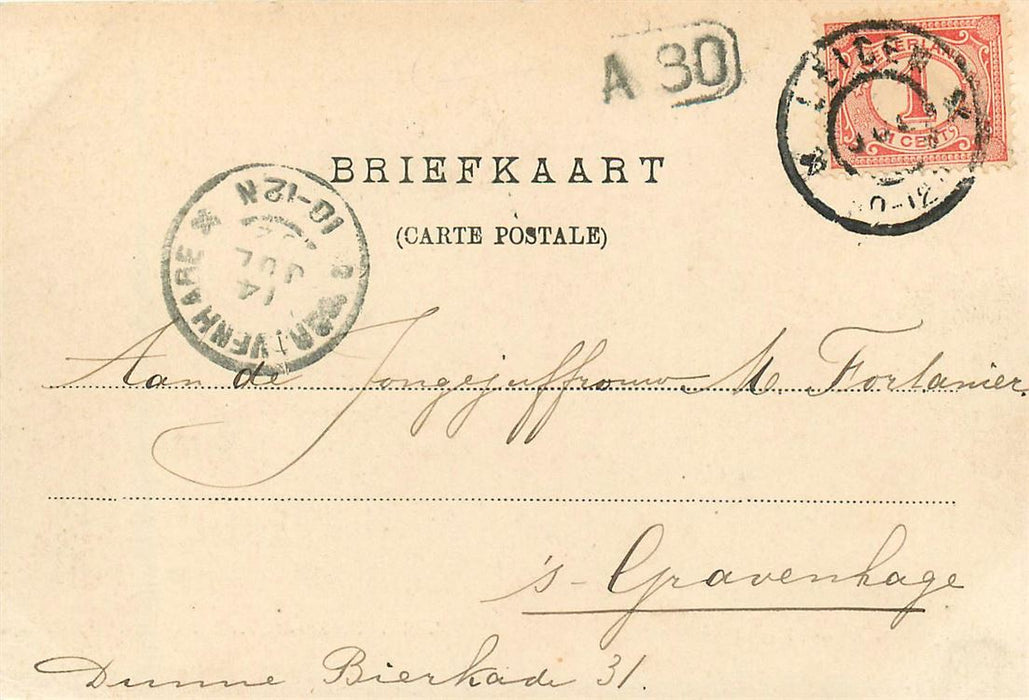 A 30
NEDERLAND
1
CENT
LEIDEN
JUL
10-12
BRIEFKAART
(CARTE POSTALE)
10-12 N
14
JUL
Aan de Jongejuffrouw M. Fortanier.
's-Gravenhage
Dunne Bierkade 31.